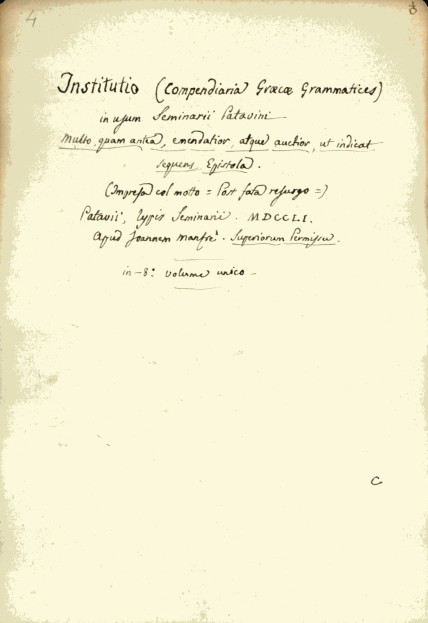 4
Institutio (Compendiaria Græcæ Grammatices)
in usum Seminarii Patavini
Multo, quam antea, emendatior, atque auctior, ut indicat
sequens Epistola.
(Impresa col motto = Post fata resurgo =)
Patavii, Typis Seminarii. MDCCLI.
Apud Joannem Manfrè. Superiorum Permissu.
in-8.º volume unico
C